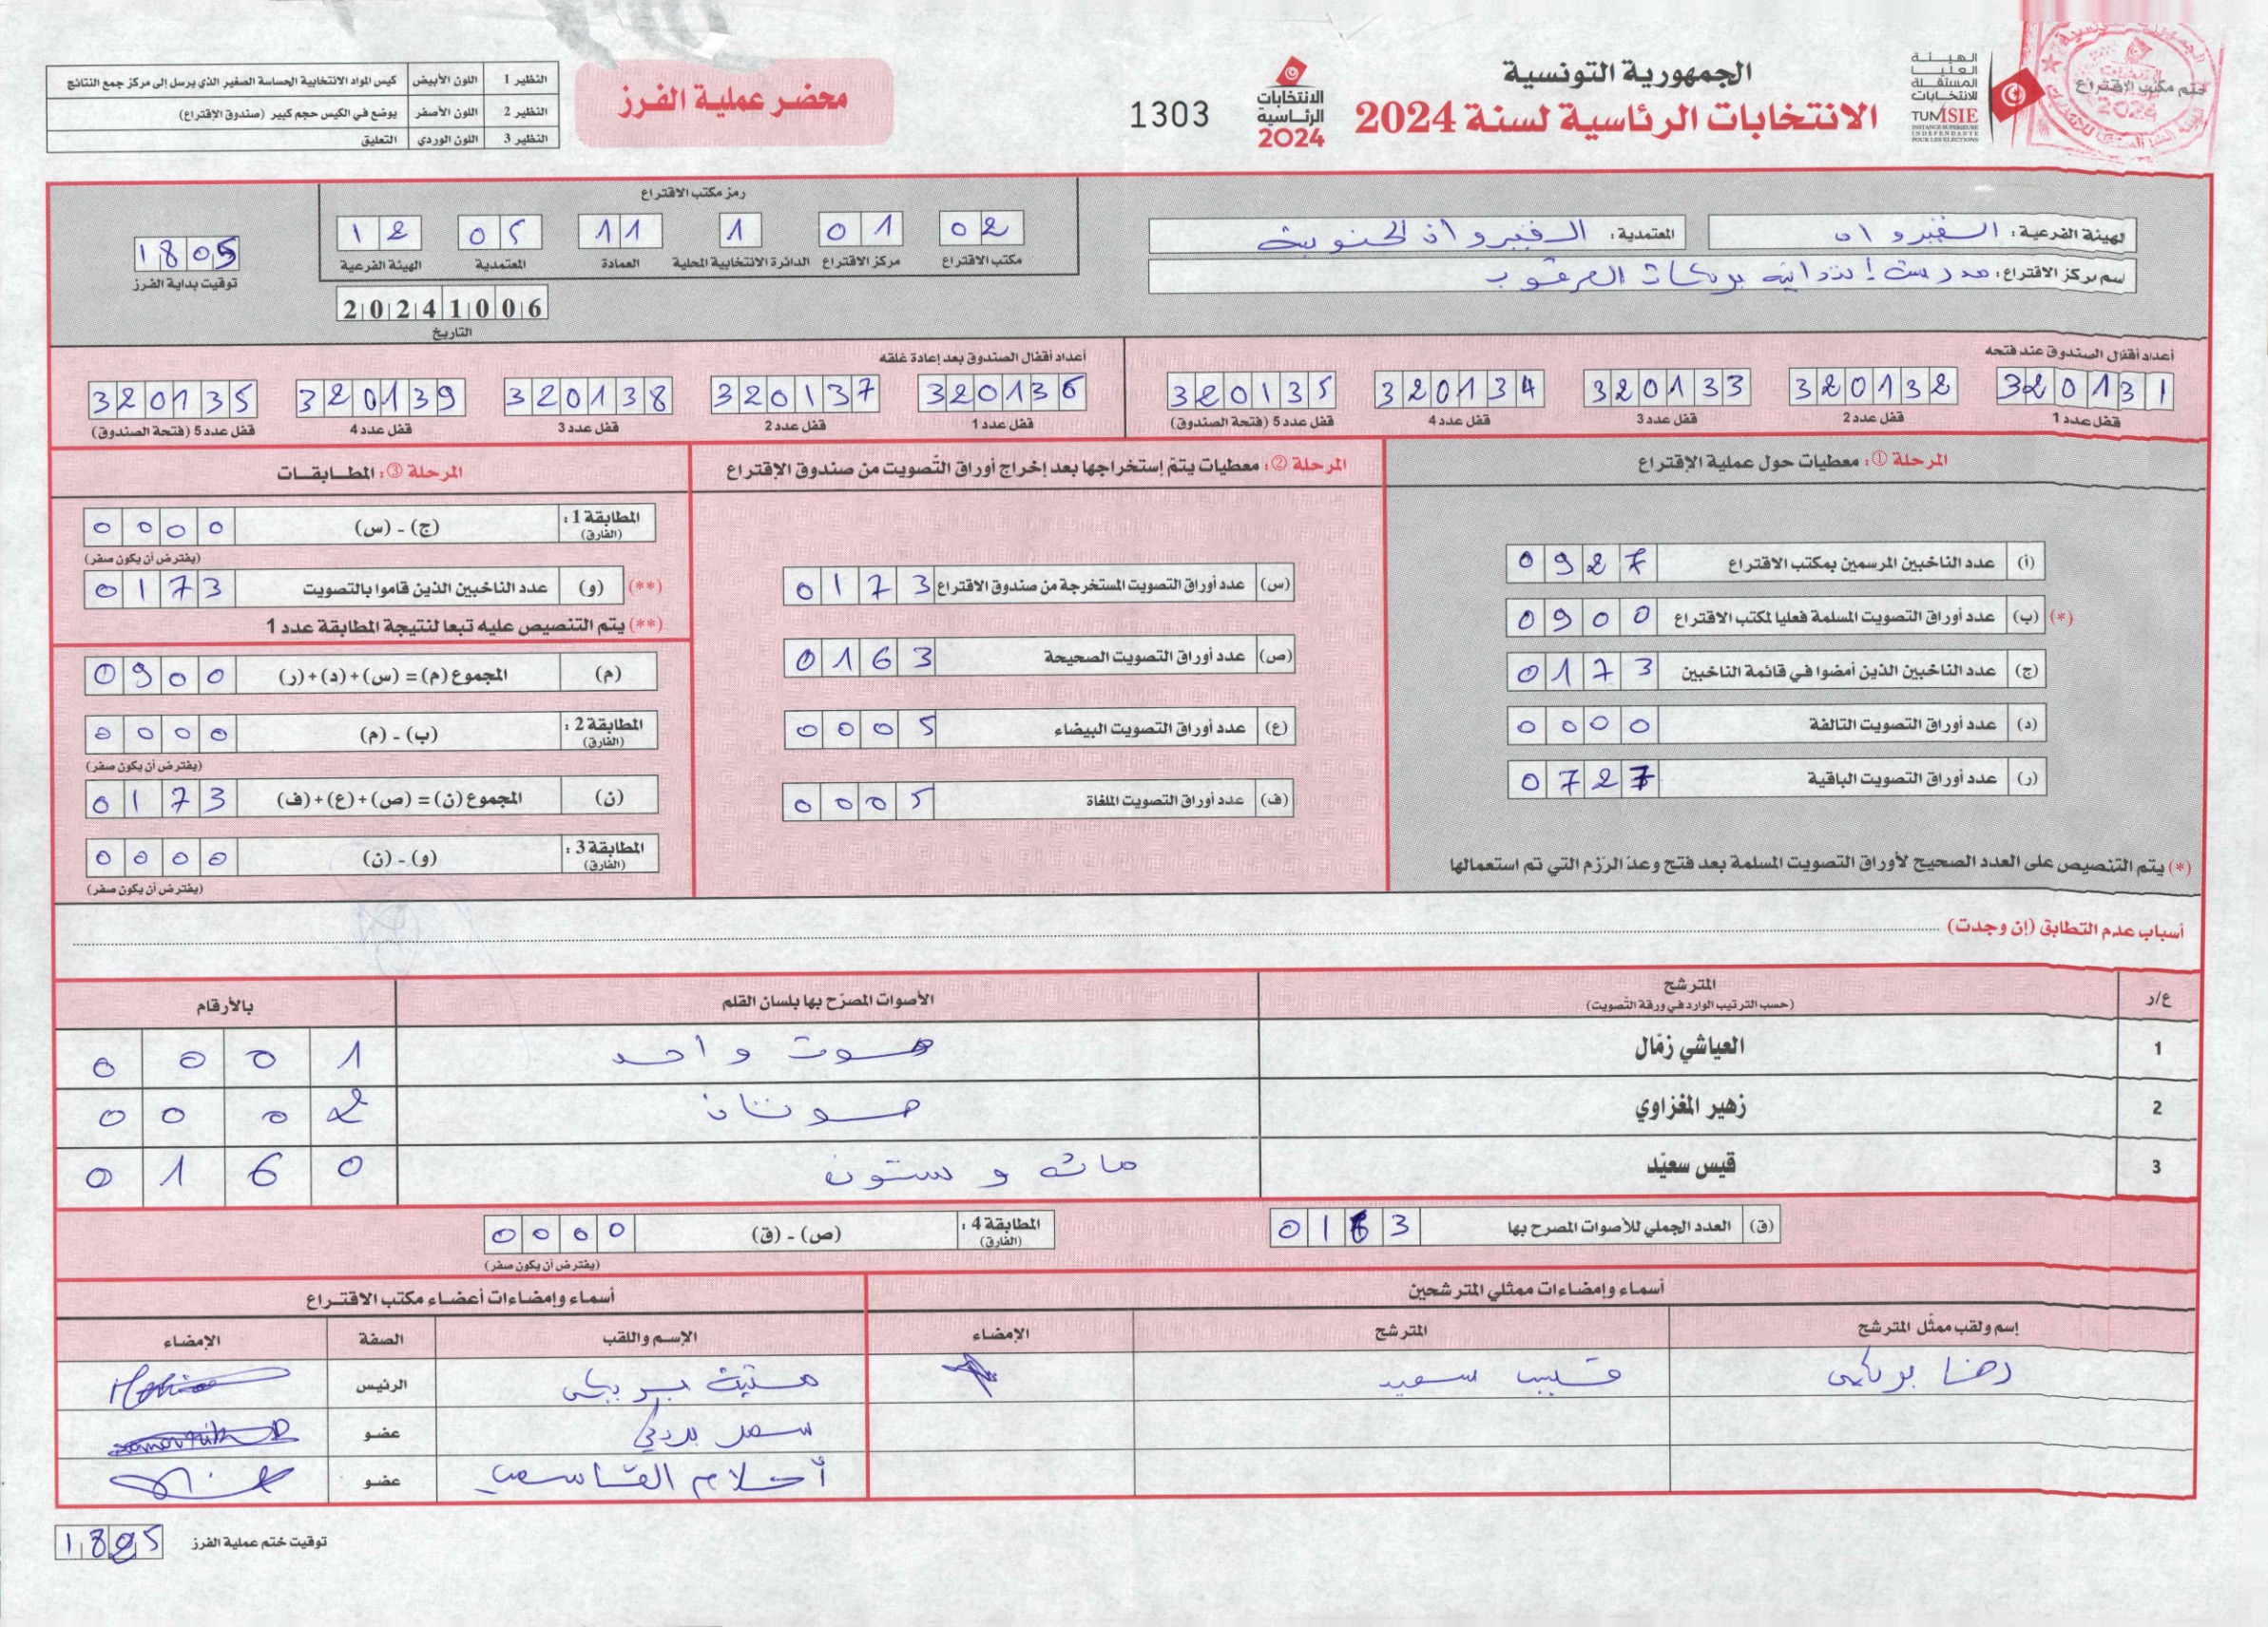 الجمهورية التونسية
الانتخابات الرئاسية لسنة 2024
الهيئة العليا المستقلة للانتخابات
TUNISIE
INSTANCE SUPERIEURE INDEPENDANTE POUR LES ELECTIONS
ختم مكتب الاقتراع
الانتخابات الرئاسية 2024
1303
محضر عملية الفرز
النظير 1 اللون الأبيض كيس المواد الانتخابية الحساسة الصغير الذي يرسل إلى مركز جمع النتائج
النظير 2 اللون الأصفر يوضع في الكيس حجم كبير (صندوق الإقتراع)
النظير 3 اللون الوردي التعليق
لهيئة الفرعية: القيروان
المعتمدية: القيروان الجنوبية
سم مركز الاقتراع: مدرسة إبتدائية بوركات العرقوب
رمز مكتب الاقتراع
02 مكتب الاقتراع
01 مركز الاقتراع
1 الدائرة الانتخابية المحلية
11 العمادة
05 المعتمدية
12 الهيئة الفرعية
20241006
التاريخ
1805
توقيت بداية الفرز
أعداد أقفال الصندوق عند فتحه
320131 قفل عدد 1
320132 قفل عدد 2
320133 قفل عدد 3
320134 قفل عدد 4
320135 قفل عدد 5 (فتحة الصندوق)
أعداد أقفال الصندوق بعد إعادة غلقه
320136 قفل عدد 1
320137 قفل عدد 2
320138 قفل عدد 3
320139 قفل عدد 4
320135 قفل عدد 5 (فتحة الصندوق)
المرحلة ①: معطيات حول عملية الإقتراع
(أ) عدد الناخبين المرسمين بمكتب الاقتراع 0927
(*) (ب) عدد أوراق التصويت المسلمة فعليا لمكتب الاقتراع 0900
(ج) عدد الناخبين الذين أمضوا في قائمة الناخبين 0173
(د) عدد أوراق التصويت التالفة 0000
(ر) عدد أوراق التصويت الباقية 0727
(*) يتم التنصيص على العدد الصحيح لأوراق التصويت المسلمة بعد فتح وعدّ الرّزم التي تم استعمالها
المرحلة ②: معطيات يتمّ إستخراجها بعد إخراج أوراق التّصويت من صندوق الإقتراع
(س) عدد أوراق التصويت المستخرجة من صندوق الاقتراع 0173
(ص) عدد أوراق التصويت الصحيحة 0163
(ع) عدد أوراق التصويت البيضاء 0005
(ف) عدد أوراق التصويت الملغاة 0005
المرحلة ③: المطابقات
المطابقة 1: (الفارق) (ج) - (س) 0000
(يفترض أن يكون صفر)
(**) (و) عدد الناخبين الذين قاموا بالتصويت 0173
(**) يتم التنصيص عليه تبعا لنتيجة المطابقة عدد 1
(م) المجموع (م) = (س)+(د)+(ر) 0900
المطابقة 2: (الفارق) (ب) - (م) 0000
(يفترض أن يكون صفر)
(ن) المجموع (ن) = (ص)+(ع)+(ف) 0173
المطابقة 3: (الفارق) (و) - (ن) 0000
(يفترض أن يكون صفر)
أسباب عدم التطابق (إن وجدت)
ع/ر المترشح (حسب الترتيب الوارد في ورقة التّصويت) الأصوات المصرّح بها بلسان القلم بالأرقام
1 العياشي زمّال صوت واحد 0001
2 زهير المغزاوي صوتان 0002
3 قيس سعيّد مائة وستون 0160
(ق) العدد الجملي للأصوات المصرح بها 0163
المطابقة 4: (الفارق) (ص) - (ق) 0000
(يفترض أن يكون صفر)
أسماء وإمضاءات ممثلي المترشحين
إسم ولقب ممثّل المترشح المترشح الإمضاء
رضا قيس سعيد
أسماء وإمضاءات أعضاء مكتب الاقتراع
الإسم واللقب الصفة الإمضاء
الرئيس
عضو
أحلام القاسمي عضو
توقيت ختم عملية الفرز 1825